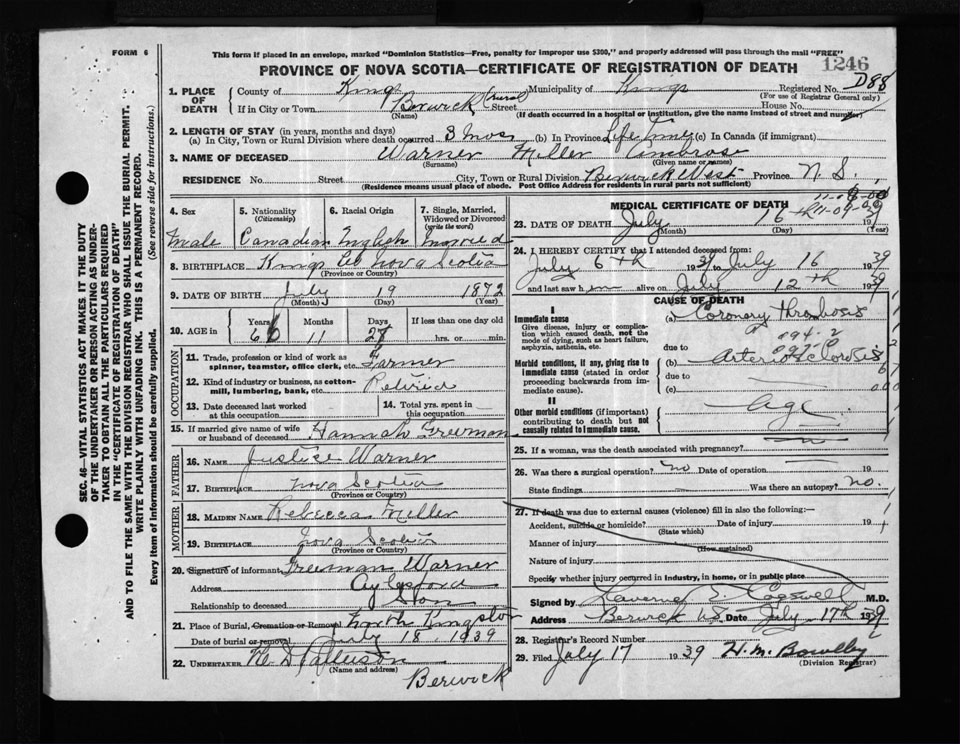 FORM 6
This form if placed in an envelope, marked "Dominion Statistics—Free, penalty for improper use $300," and properly addressed will pass through the mail "FREE"
1246
PROVINCE OF NOVA SCOTIA—CERTIFICATE OF REGISTRATION OF DEATH
SEC. 46—VITAL STATISTICS ACT MAKES IT THE DUTY
OF THE UNDERTAKER OR PERSON ACTING AS UNDER-
TAKER TO OBTAIN ALL THE PARTICULARS REQUIRED
IN THE "CERTIFICATE OF REGISTRATION OF DEATH"
AND TO FILE THE SAME WITH THE DIVISION REGISTRAR WHO SHALL ISSUE THE BURIAL PERMIT.
WRITE PLAINLY WITH UNFADING INK. THIS IS A PERMANENT RECORD.
Every item of information should be carefully supplied. (See reverse side for instructions.)
1. PLACE OF DEATH
County of Kings Municipality of Kings Registered No. D88
(For use of Registrar General only)
If in City or Town Berwick (Rural) Street House No.
(Name) (If death occurred in a hospital or institution, give the name instead of street and number)
2. LENGTH OF STAY (in years, months and days)
(a) In City, Town or Rural Division where death occurred 3 mos (b) In Province Life Time (c) In Canada (if immigrant)
3. NAME OF DECEASED Warner Miller Ambrose
(Surname) (Given name or names)
RESIDENCE No. Street City, Town or Rural Division Berwick West Province N. S.
(Residence means usual place of abode. Post Office Address for residents in rural parts not sufficient)
4. Sex 5. Nationality (Citizenship) 6. Racial Origin 7. Single, Married, Widowed or Divorced (write the word)
Male Canadian English Married
8. BIRTHPLACE Kings Co Nova Scotia
(Province or Country)
9. DATE OF BIRTH July 19 1872
(Month) (Day) (Year)
10. AGE in Years Months Days If less than one day old
66 11 27 hrs. or min.
OCCUPATION
11. Trade, profession or kind of work as spinner, teamster, office clerk, etc. Farmer
12. Kind of industry or business, as cotton-mill, lumbering, bank, etc. Retired
13. Date deceased last worked at this occupation 14. Total yrs. spent in this occupation
15. If married give name of wife or husband of deceased Hannah Freeman
FATHER
16. NAME Justice Warner
17. BIRTHPLACE Nova Scotia
(Province or Country)
MOTHER
18. MAIDEN NAME Rebecca Miller
19. BIRTHPLACE Nova Scotia
(Province or Country)
20. Signature of informant Freeman Warner
Address Aylesford
Relationship to deceased Son
21. Place of Burial, Cremation or Removal North Kingston
Date of burial or removal July 18, 1939
22. UNDERTAKER
(Name and address)
Berwick
MEDICAL CERTIFICATE OF DEATH
23. DATE OF DEATH July 16th 1939
(Month) (Day)
24. I HEREBY CERTIFY that I attended deceased from:
July 6th 1939 to July 16 1939
and last saw him alive on July 12th 1939
CAUSE OF DEATH
I
Immediate cause
Give disease, injury or complication which caused death, not the mode of dying, such as heart failure, asphyxia, asthenia, etc.
(a) Coronary thrombosis
094.2
due to
Morbid conditions, if any, giving rise to immediate cause (stated in order proceeding backwards from immediate cause).
(b) Arteriosclerosis
due to
(c)
II
Other morbid conditions (if important) contributing to death but not causally related to immediate cause.
Age
25. If a woman, was the death associated with pregnancy?
26. Was there a surgical operation? no Date of operation 19
State findings Was there an autopsy? no.
27. If death was due to external causes (violence) fill in also the following:—
Accident, suicide or homicide? Date of injury 19
(State which)
Manner of injury
(How sustained)
Nature of injury
Specify whether injury occurred in industry, in home, or in public place
Signed by Laverne S. Cogswell M.D.
Address Berwick NS Date July 17th 1939
28. Registrar's Record Number
29. Filed July 17 1939
(Division Registrar)